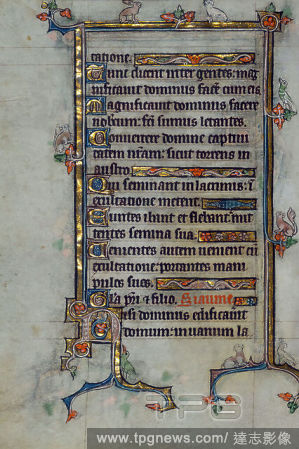 tatione.
Tunc dicent inter gentes: mag
nificauit dominus facere cum eis
Magnificauit dominus facere
nobiscum: facti sumus letantes.
Conuertere domine captiui
tatem nostram: sicut torrens in
austro.
Qui seminant in lacrimis: in
exultatione metent.
Euntes ibant et flebant: mit
tentes semina sua.
Uenientes autem uenient cum
exultatione: portantes mani
pulos suos.
Gloria patri et filio.
Nisi dominus edificauit
domum: in uanum la
TPG
www.tpgnews.com/達志影像